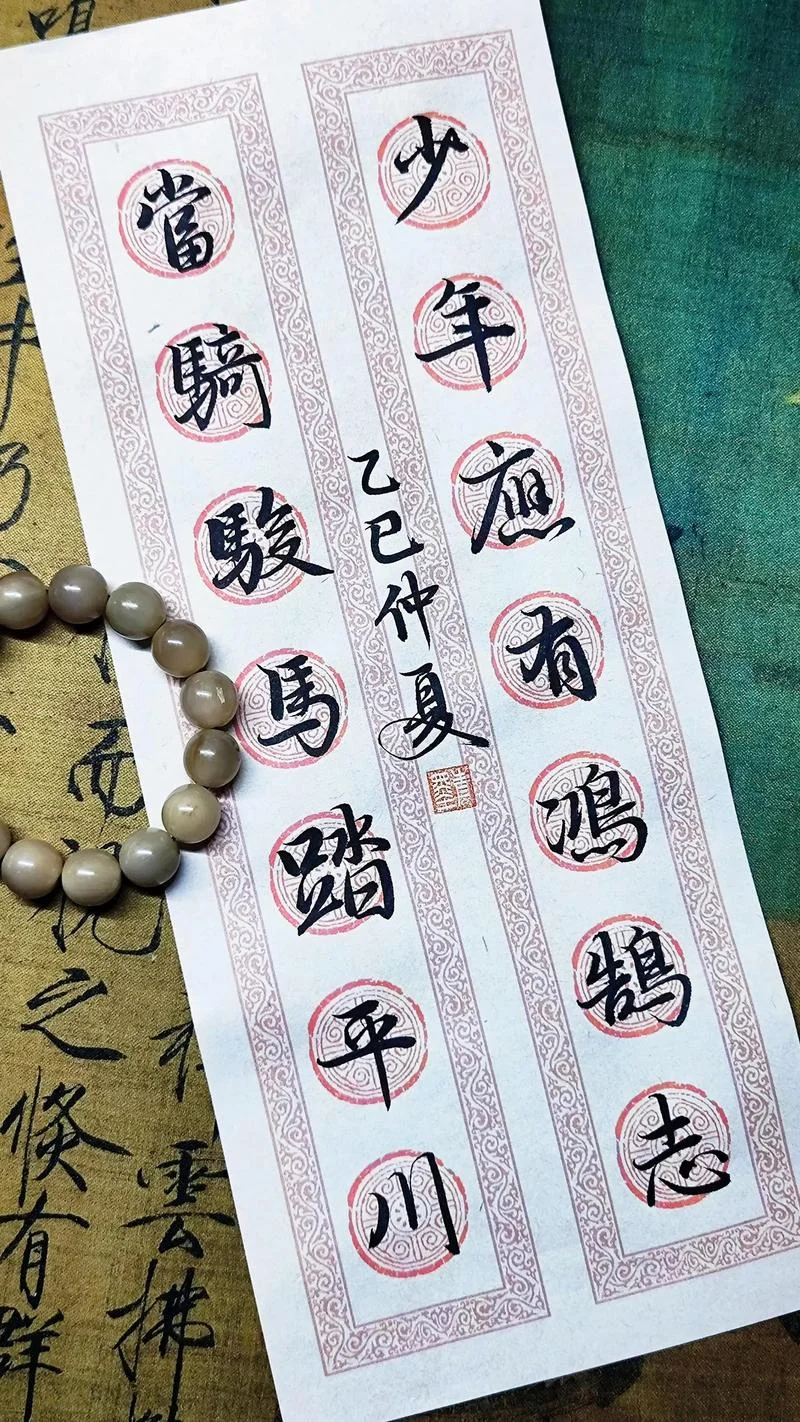 少年應有鴻鵠志
當騎駿馬踏平川
乙巳仲夏
而
之
倏有群
雲拂